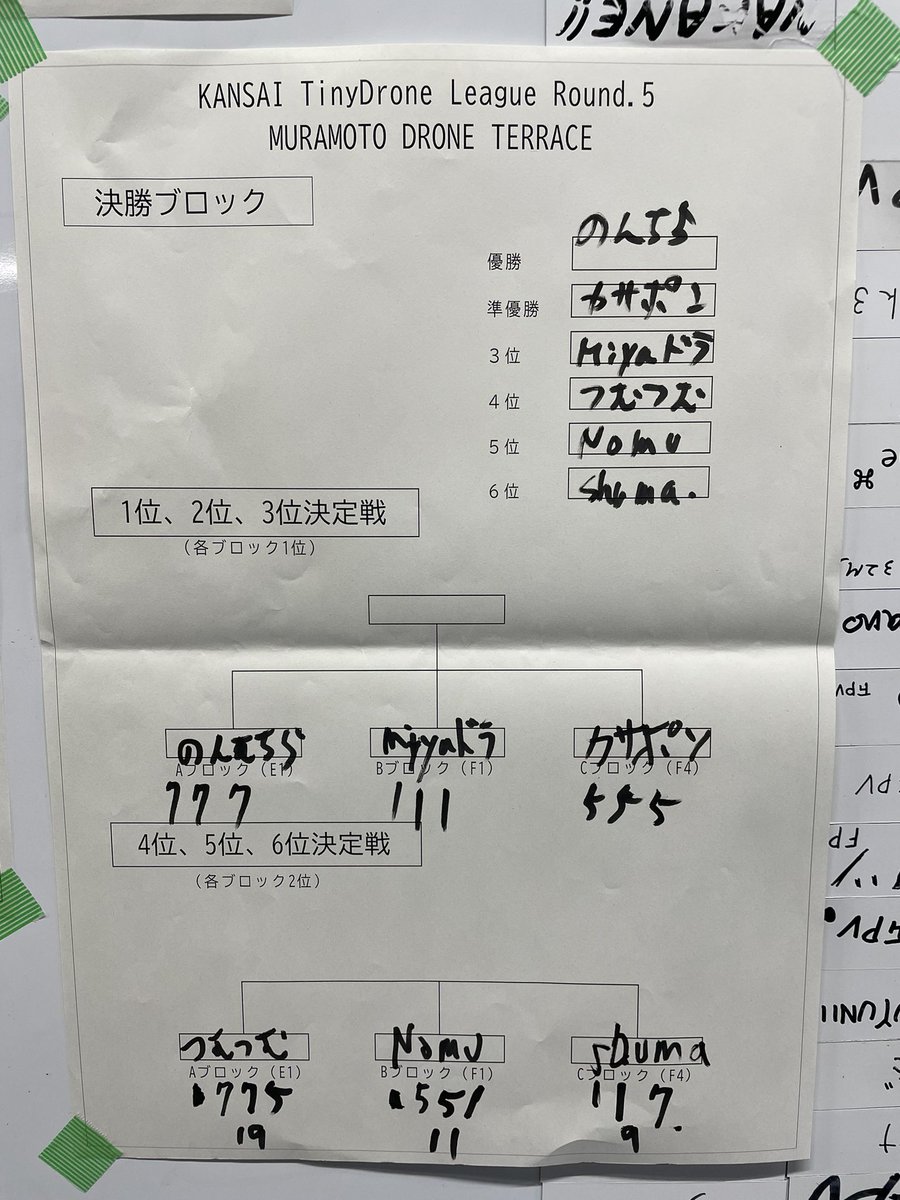 KANSAI TinyDrone League Round.5
MURAMOTO DRONE TERRACE
決勝ブロック
優勝 のんちら
準優勝 カサポン
3位 Miyaドラ
4位 つむつむ
5位 Nomu
6位 Shuma.
1位、2位、3位決定戦
(各ブロック1位)
のんむちら Miyaドラ カサポン
Aブロック(E1) Bブロック(F1) Cブロック(F4)
777 111 555
4位、5位、6位決定戦
(各ブロック2位)
つむつむ Nomu shuma
Aブロック(E1) Bブロック(F1) Cブロック(F4)
775 551 117.
19 11 9